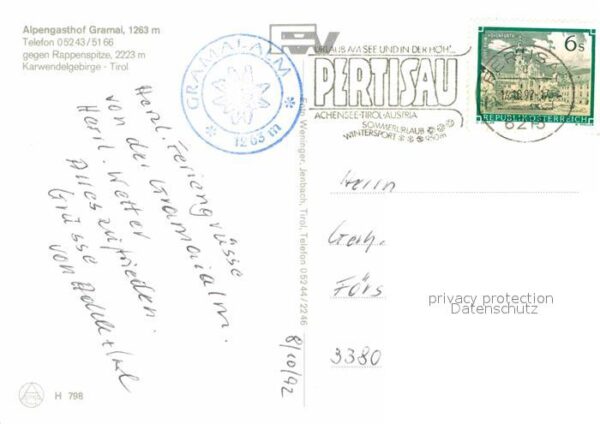 Alpengasthof Gramai, 1263 m
Telefon 05243/5166
gegen Rappenspitze, 2223 m
Karwendelgebirge - Tirol
GRAMAI-ALM
1263 m
URLAUB AM SEE UND IN DER HÖH'
PERTISAU
ACHENSEE-TIROL-AUSTRIA
SOMMERURLAUB
WINTERSPORT 950m
6s
REPUBLIK ÖSTERREICH
6213
Herzl. Feriengrüsse
von der Gramaialm.
Herrl. Wetter
Alles zufrieden.
Grüsse
von
Foto Weninger, Jenbach, Tirol, Telefon 05244/2246
8/10/92
Herrn
Gerh.
Förs
3380
privacy protection
Datenschutz
H 798